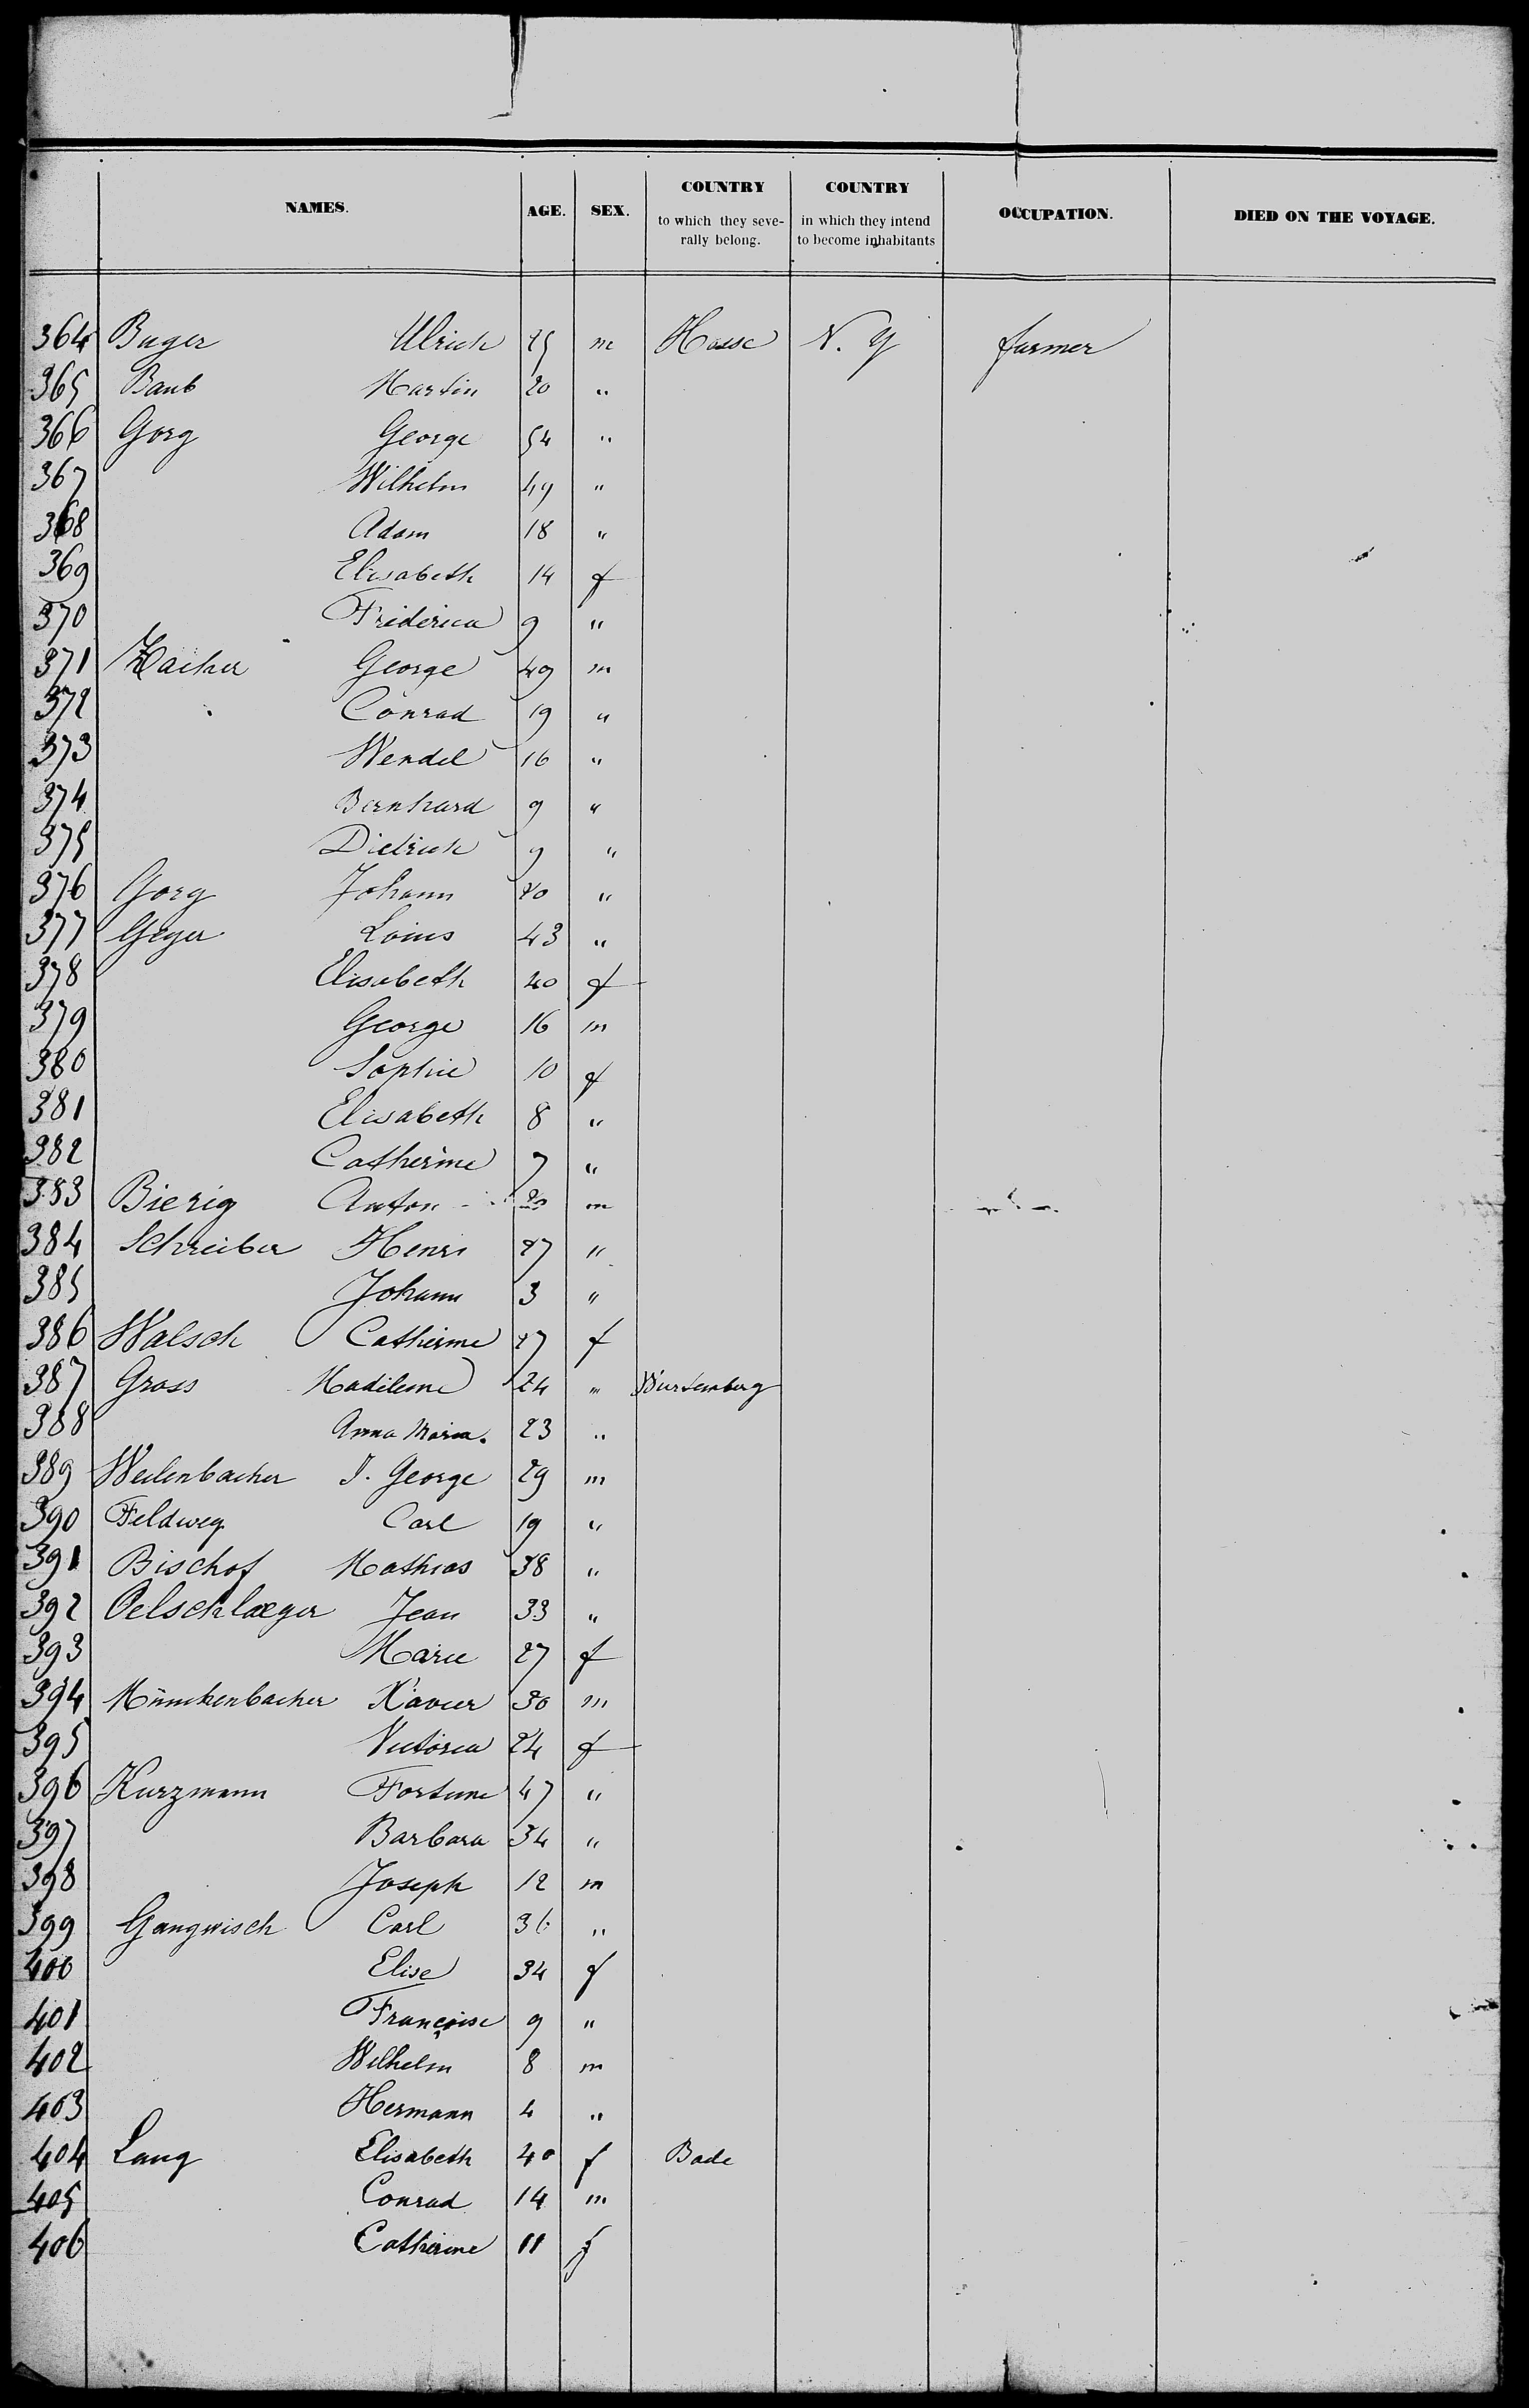 NAMES. AGE. SEX. COUNTRY to which they seve- rally belong. COUNTRY in which they intend to become inhabitants OCCUPATION. DIED ON THE VOYAGE.
364 Buger Ulrich 25 m Hesse N. Y farmer
365 Baub Martin 20 "
366 Gorg George 54 "
367 Wilhelm 49 "
368 Adam 18 "
369 Elisabeth 14 f
370 Friderica 9 "
371 Zacher George 49 m
372 Conrad 19 "
373 Wendel 16 "
374 Bernhard 9 "
375 Dietrich 9 "
376 Gorg Johann 20 "
377 Geyer Loius 43 "
378 Elisabeth 40 f
379 George 16 m
380 Sophie 10 f
381 Elisabeth 8 "
382 Catherine 7 "
383 Bierig Anton 20 m
384 Schreiber Henri 27 "
385 Johann 3 "
386 Walsch Catherine 27 f
387 Gross Madilene 24 " Wurtemberg
388 Anna Maria. 23 "
389 Weilenbacher J. George 29 m
390 Feldweg Carl 19 "
391 Bischof Mathias 38 "
392 Oelschlaeger Jean 33 "
393 Marie 27 f
394 Münchenbacher Xavier 30 m
395 Victoria 24 f
396 Kurzmann Fortune 47 "
397 Barbara 34 "
398 Joseph 12 m
399 Gangwisch Carl 36 "
400 Elise 34 f
401 Françoise 9 "
402 Wilhelm 8 m
403 Hermann 4 "
404 Lang Elisabeth 40 f Bade
405 Conrad 14 m
406 Catherine 11 f